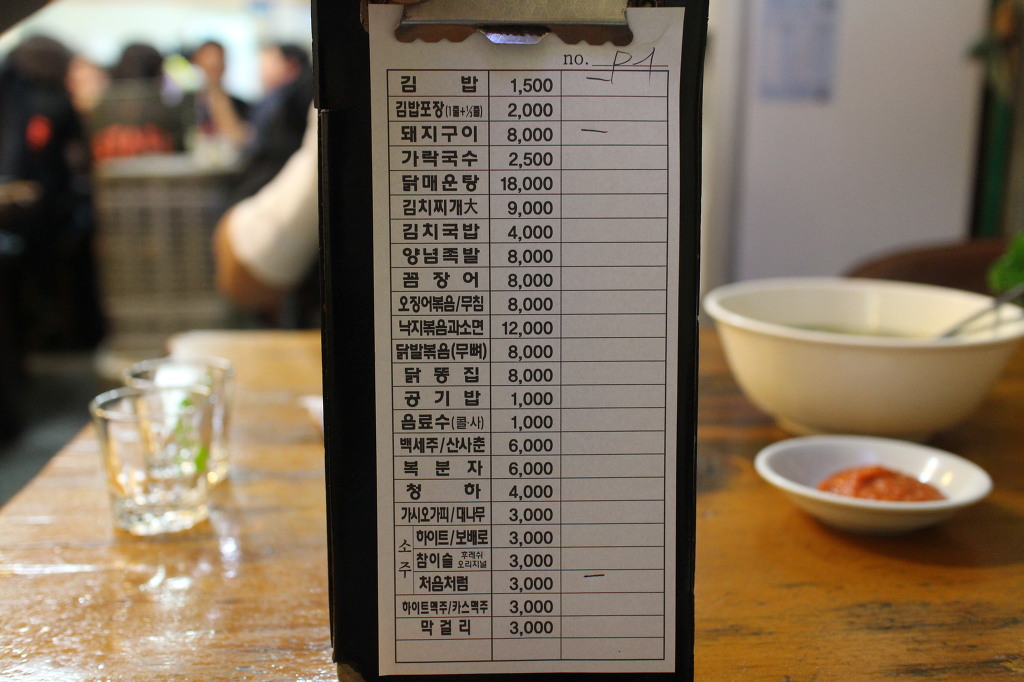 no. P1
김 밥 1,500
김밥포장(1줄+½줄) 2,000
돼지구이 8,000 —
가락국수 2,500
닭매운탕 18,000
김치찌개大 9,000
김치국밥 4,000
양념족발 8,000
꼼 장 어 8,000
오징어볶음/무침 8,000
낙지볶음과소면 12,000
닭발볶음(무뼈) 8,000
닭 똥 집 8,000
공 기 밥 1,000
음료수(콜·사) 1,000
백세주/산사춘 6,000
복 분 자 6,000
청 하 4,000
가시오가피/대나무 3,000
소주 하이트/보배로 3,000
참이슬 후레쉬 오리지널 3,000
처음처럼 3,000 —
하이트맥주/카스맥주 3,000
막 걸 리 3,000